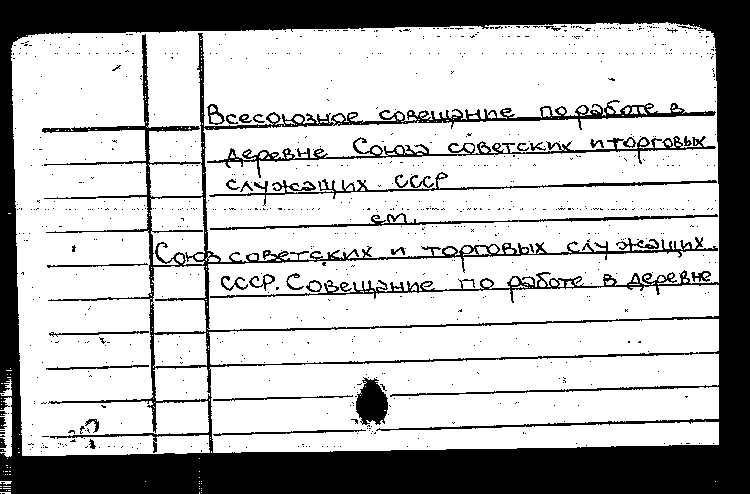 Всесоюзное совещание по работе в
деревне Союза советских и торговых
служащих СССР
см.
Союз советских и торговых служащих
СССР. Совещание по работе в деревне